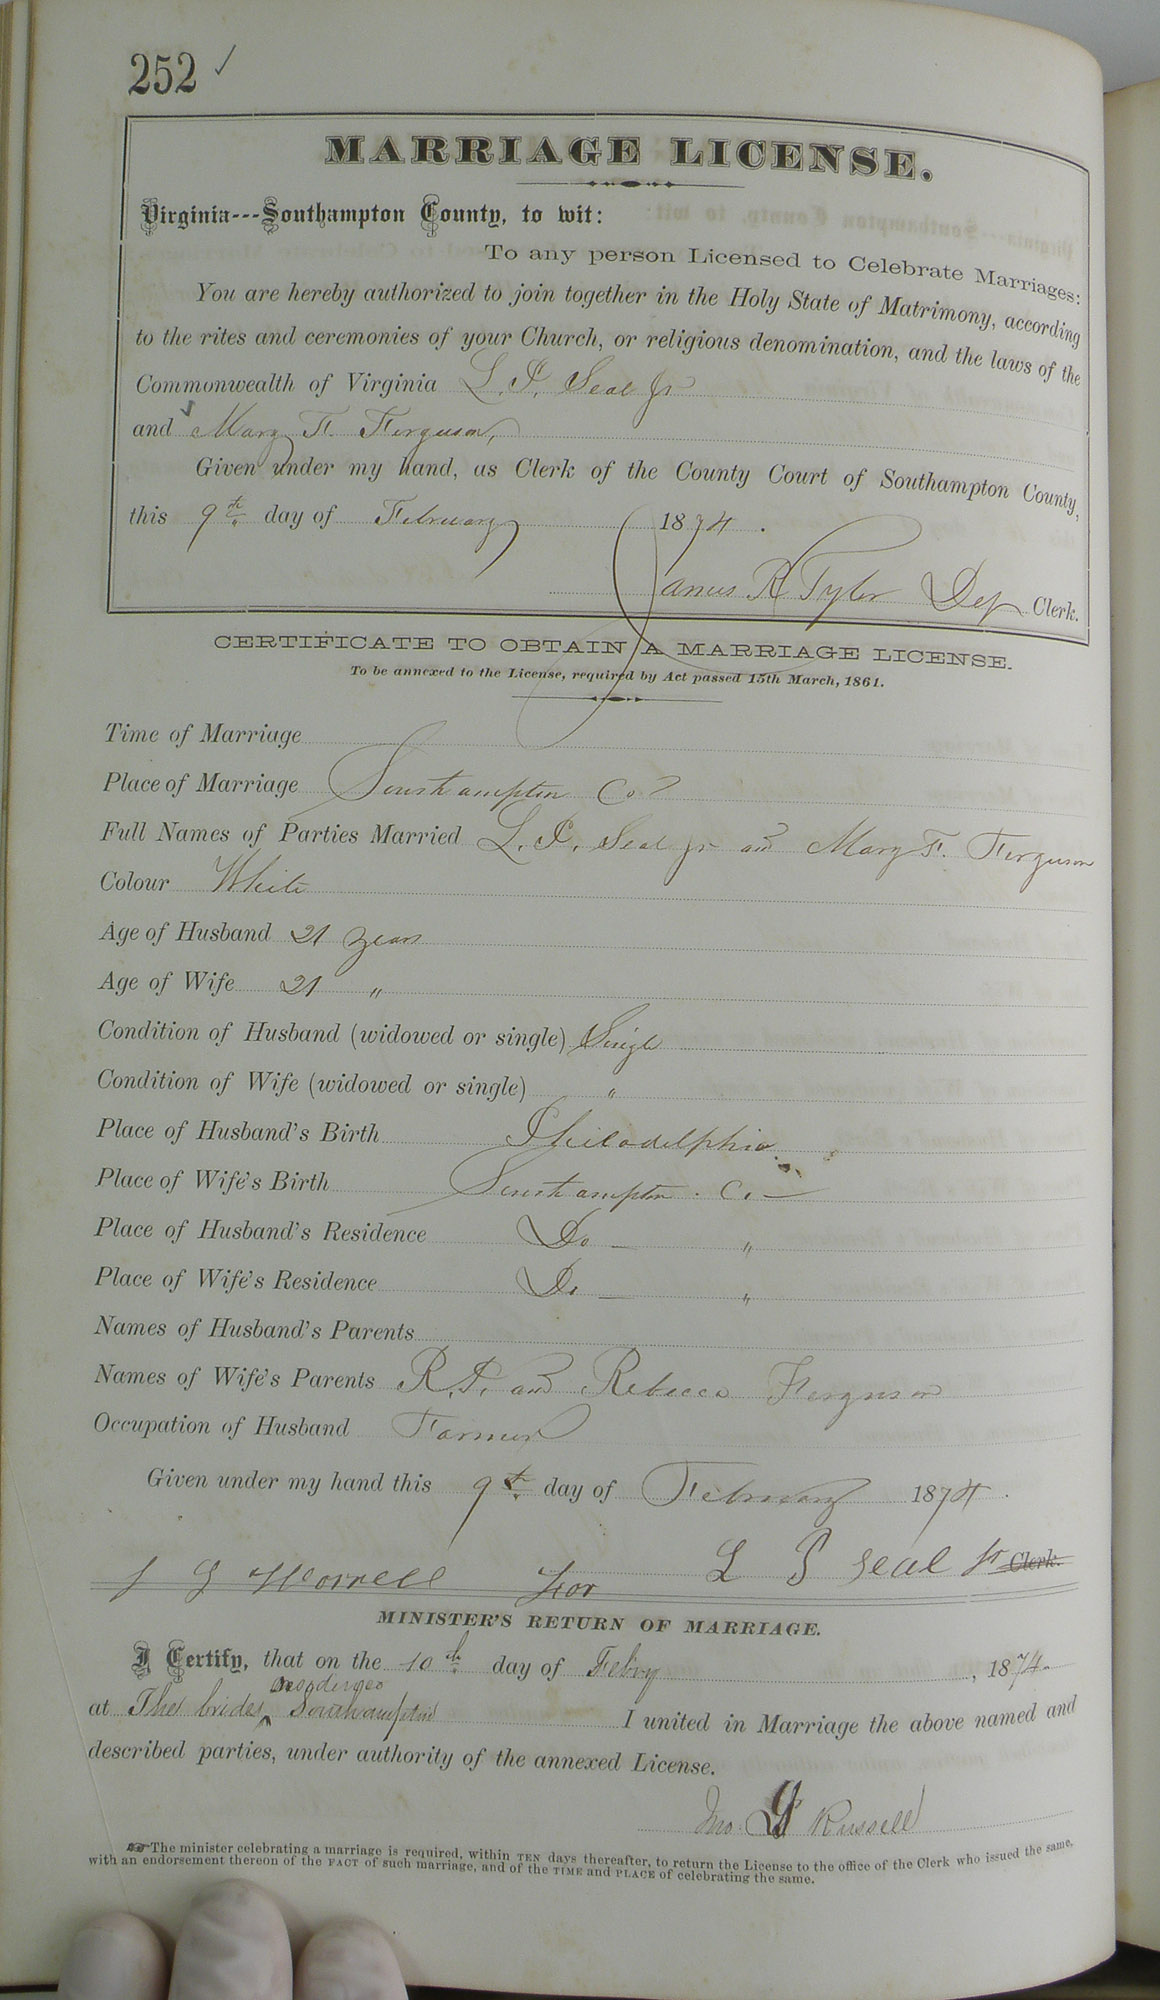 252 ✓
MARRIAGE LICENSE.
Virginia---Southampton County, to wit:
To any person Licensed to Celebrate Marriages:
You are hereby authorized to join together in the Holy State of Matrimony, according
to the rites and ceremonies of your Church, or religious denomination, and the laws of the
Commonwealth of Virginia L. P. Seal Jr
and Mary F. Ferguson,
Given under my hand, as Clerk of the County Court of Southampton County,
this 9th day of February 1874.
James R Tyler Dep Clerk.
CERTIFICATE TO OBTAIN A MARRIAGE LICENSE.
To be annexed to the License, required by Act passed 15th March, 1861.
Time of Marriage
Place of Marriage Southampton Co
Full Names of Parties Married L. P. Seal Jr and Mary F. Ferguson
Colour White
Age of Husband 21 years
Age of Wife 21 "
Condition of Husband (widowed or single) Single
Condition of Wife (widowed or single) "
Place of Husband's Birth Philadelphia
Place of Wife's Birth Southampton Co. —
Place of Husband's Residence Do — "
Place of Wife's Residence Do — "
Names of Husband's Parents
Names of Wife's Parents R. P. and Rebecca Ferguson
Occupation of Husband Farmer
Given under my hand this 9th day of February 1874.
J G Worrell For L P Seal Jr Clerk.
MINISTER'S RETURN OF MARRIAGE.
I Certify, that on the 10th day of Febry, 1874
at The brides residence Southampton I united in Marriage the above named and
described parties, under authority of the annexed License.
Jno. G Russell
The minister celebrating a marriage is required, within TEN days thereafter, to return the License to the office of the Clerk who issued the same,
with an endorsement thereon of the FACT of such marriage, and of the TIME and PLACE of celebrating the same.